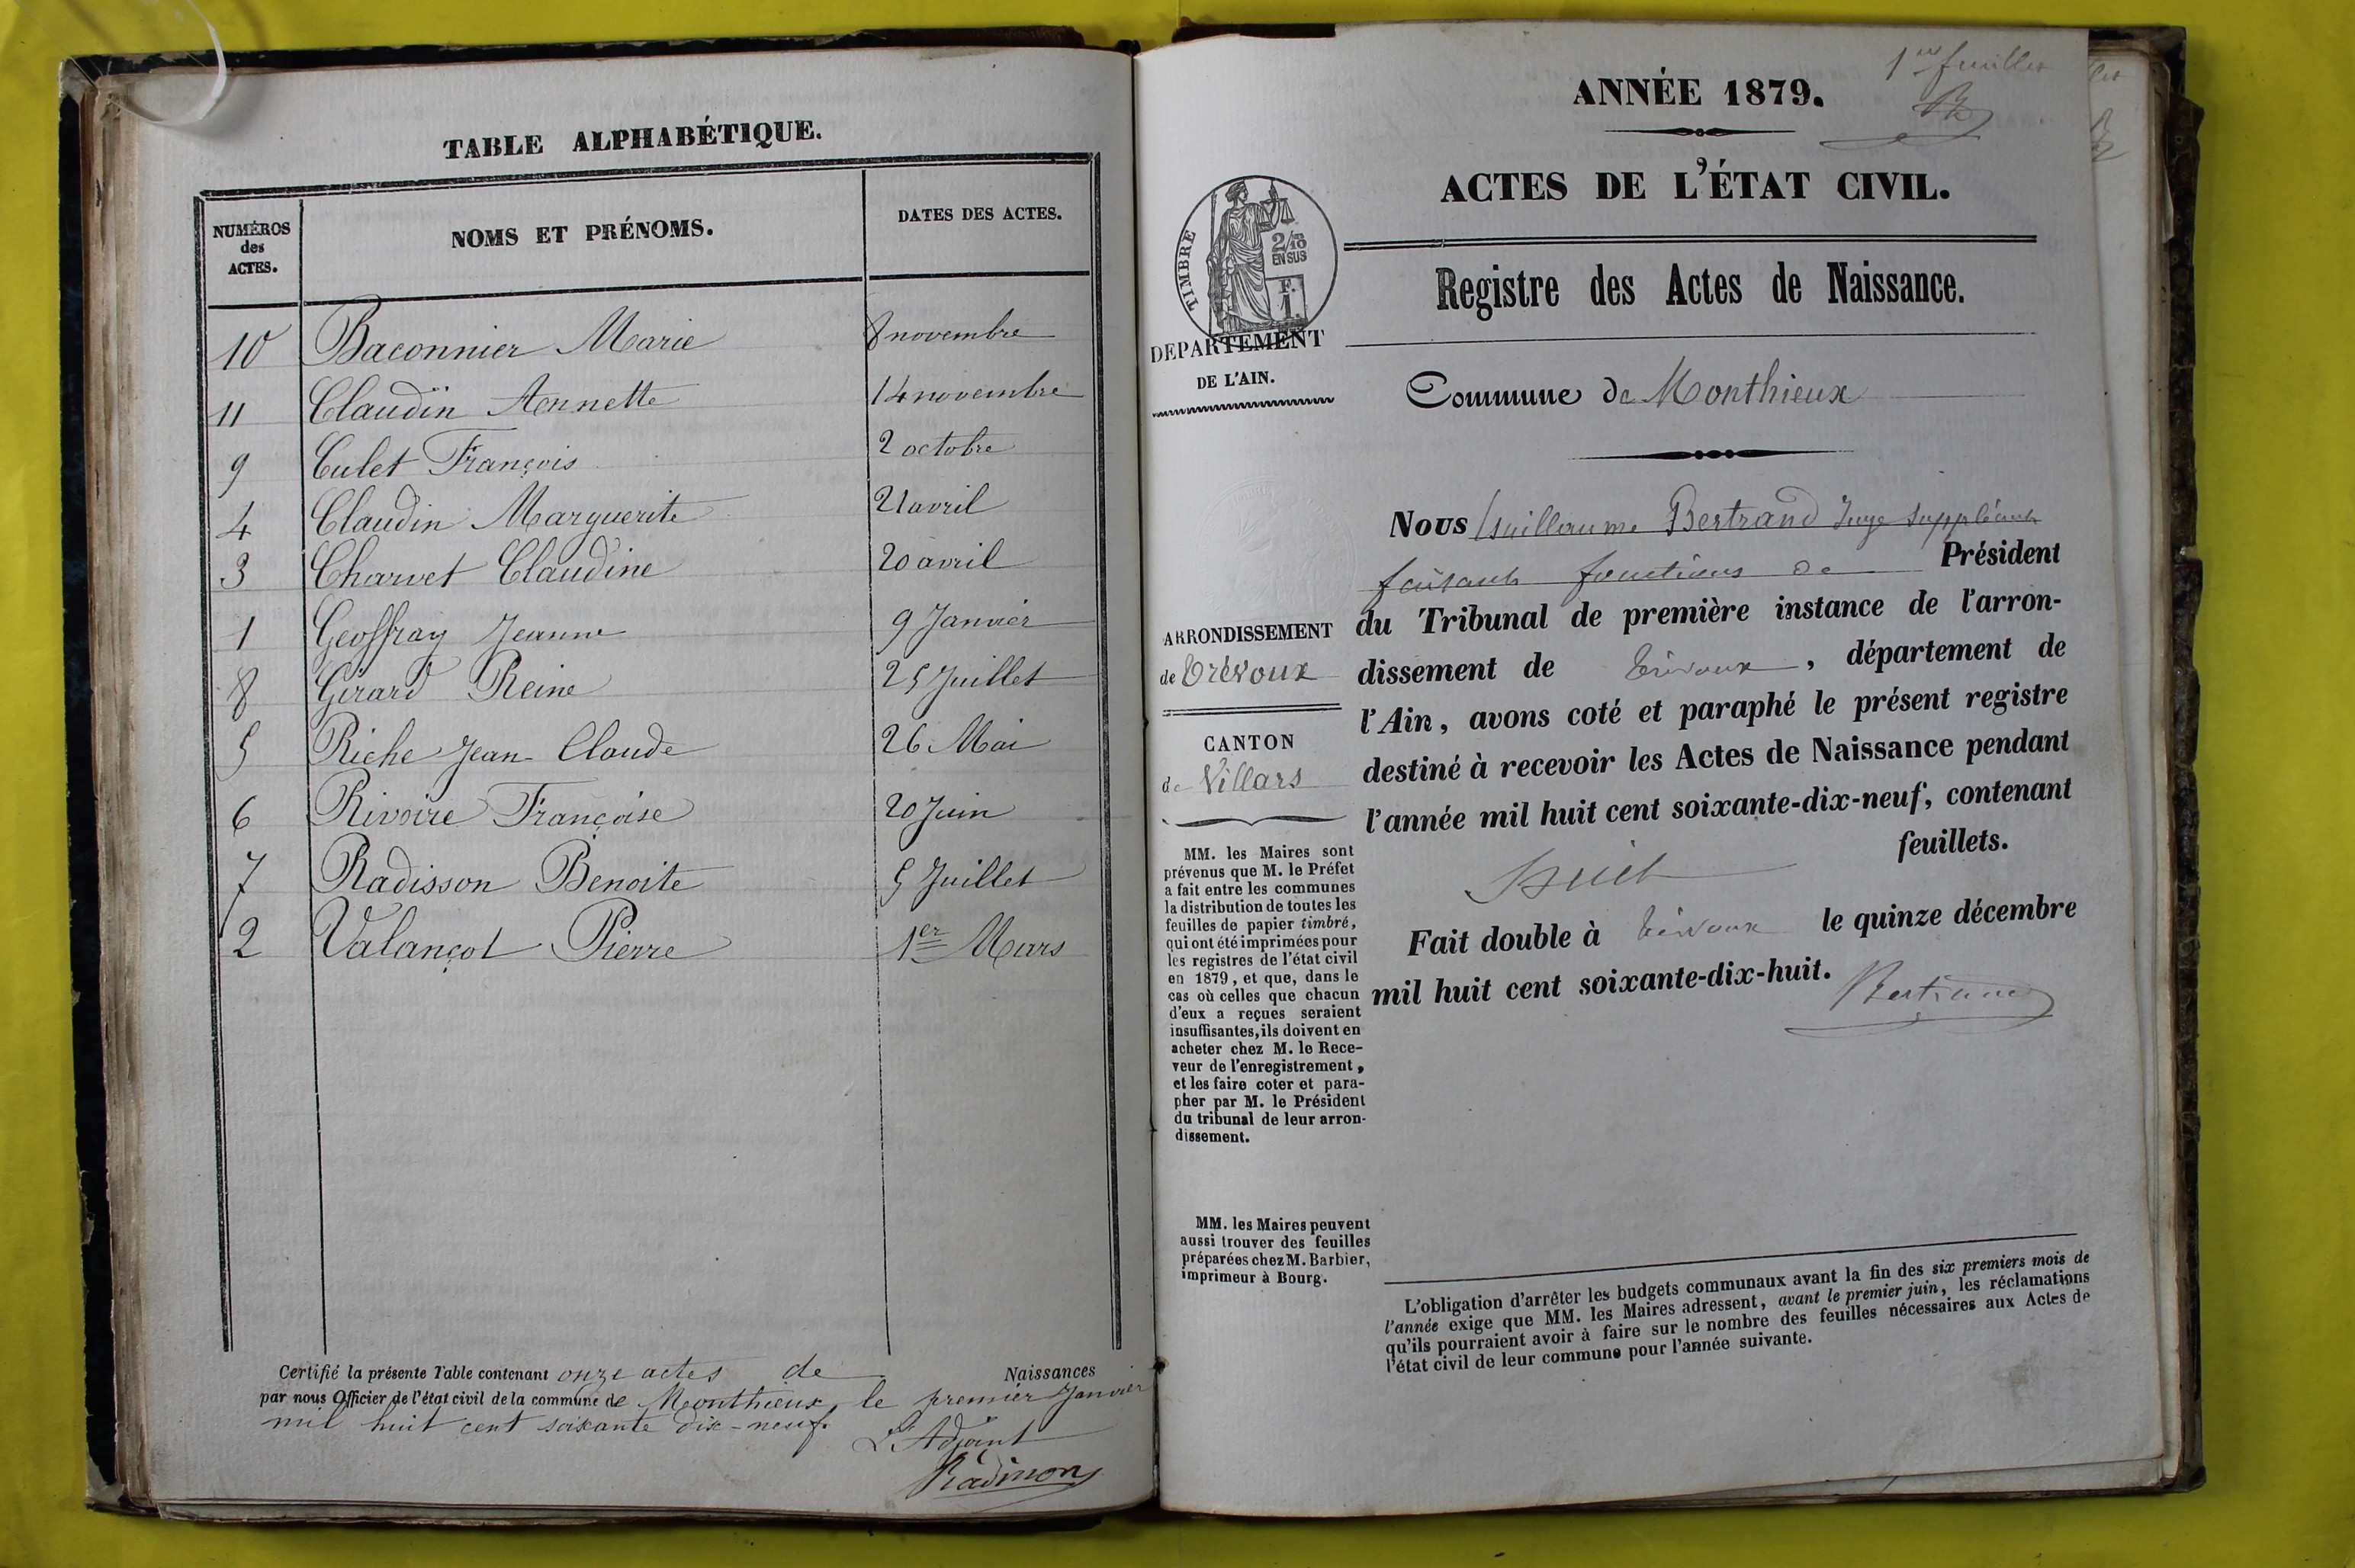 TABLE ALPHABÉTIQUE.
NUMÉROS
des
ACTES.
NOMS ET PRÉNOMS.
DATES DES ACTES.
10 Baconnier Marie 8 novembre
11 Claudin Annette 14 novembre
9 Culet François 2 octobre
4 Claudin Marguerite 21 avril
3 Charvet Claudine 20 avril
1 Geoffray Jeanne 9 Janvier
8 Girard Reine 25 Juillet
5 Riche Jean Claude 26 Mai
6 Rivoire Françoise 20 Juin
7 Radisson Benoite 5 Juillet
2 Valançot Pierre 1er Mars
Certifié la présente Table contenant onze actes de Naissances
par nous Officier de l'état civil de la commune de Monthieux, le premier Janvier
mil huit cent soixante dix-neuf.
L'Adjoint
Radisson
1er feuillet
ANNÉE 1879.
ACTES DE L'ÉTAT CIVIL.
TIMBRE
2/10
EN SUS
F.
1.
Registre des Actes de Naissance.
DEPARTEMENT
DE L'AIN.
Commune de Monthieux
Nous Guillaume Bertrand Juge Suppléant
faisant fonctions de Président
du Tribunal de première instance de l'arron-
dissement de Trévoux, département de
l'Ain, avons coté et paraphé le présent registre
destiné à recevoir les Actes de Naissance pendant
l'année mil huit cent soixante-dix-neuf, contenant
huit feuillets.
Fait double à Trévoux le quinze décembre
mil huit cent soixante-dix-huit.
Bertrand
ARRONDISSEMENT
de Trévoux
CANTON
de Villars
MM. les Maires sont
prévenus que M. le Préfet
a fait entre les communes
la distribution de toutes les
feuilles de papier timbré,
qui ont été imprimées pour
les registres de l'état civil
en 1879, et que, dans le
cas où celles que chacun
d'eux a reçues seraient
insuffisantes, ils doivent en
acheter chez M. le Rece-
veur de l'enregistrement,
et les faire coter et para-
pher par M. le Président
du tribunal de leur arron-
dissement.
MM. les Maires peuvent
aussi trouver des feuilles
préparées chez M. Barbier,
imprimeur à Bourg.
L'obligation d'arrêter les budgets communaux avant la fin des six premiers mois de
l'année exige que MM. les Maires adressent, avant le premier juin, les réclamations
qu'ils pourraient avoir à faire sur le nombre des feuilles nécessaires aux Actes de
l'état civil de leur commune pour l'année suivante.